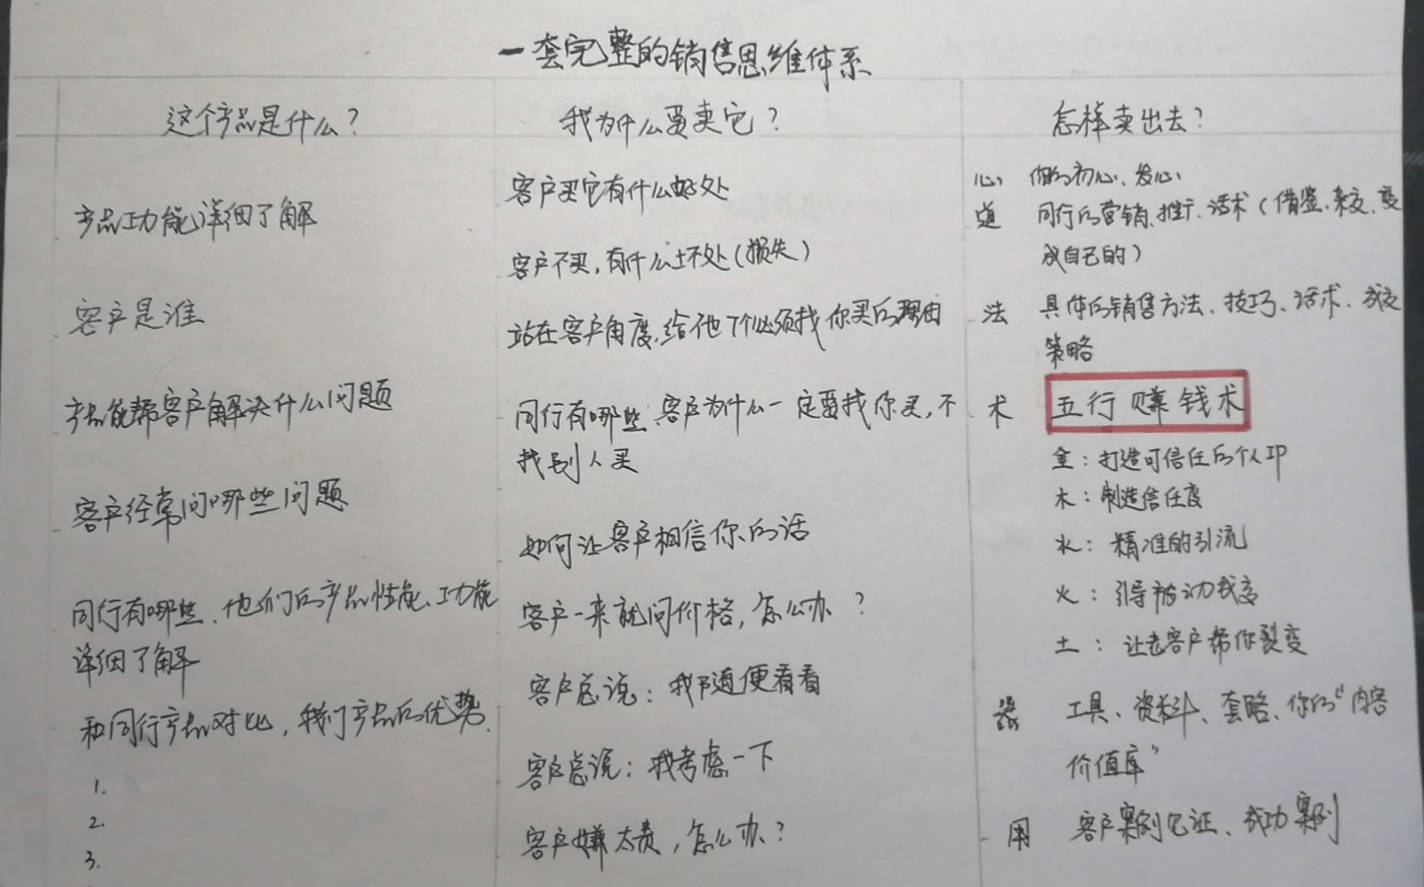 一套完整的销售思维体系
这个产品是什么?
产品功能详细了解
客户是谁
产品能帮客户解决什么问题
客户经常问哪些问题
同行有哪些、他们的产品性能、功能
详细了解
和同行产品对比,我们产品的优势.
1.
2.
3.
我为什么要卖它?
客户买它有什么好处
客户不买,有什么坏处(损失)
站在客户角度,给他1个必须找你买的理由
同行有哪些、客户为什么一定要找你买,不
找别人买
如何让客户相信你的话
客户一来就问价格,怎么办?
客户总说:我随便看看
客户总说:我考虑一下
客户嫌太贵,怎么办?
怎样卖出去?
心 你的初心、发心
道 同行的营销、推广、话术(借鉴、变
成自己的)
法 具体的销售方法、技巧、话术、成交
策略
术 五行赚钱术
金:打造可信任的个人IP
木:制造信任度
水:精准的引流
火:引导被动成交
土:让老客户帮你裂变
器 工具、资料、套路、你的“内容
价值库”
用 客户案例见证、成功案例